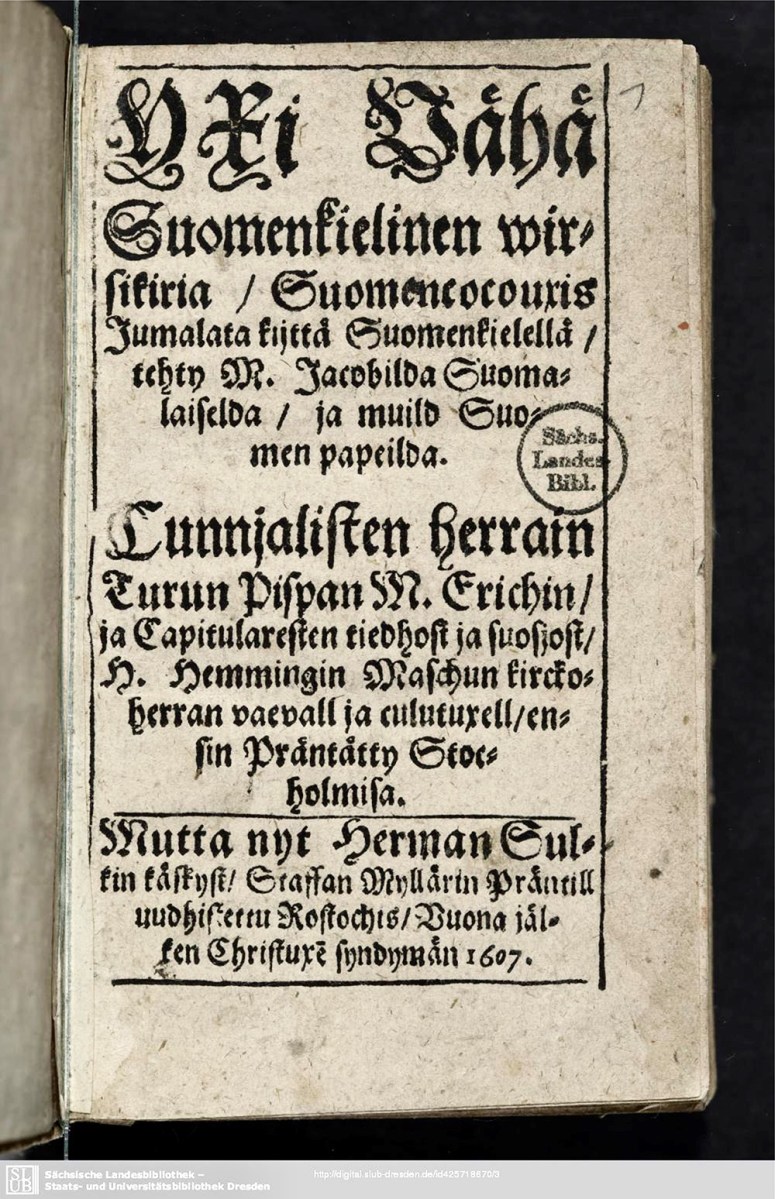 YXi Vähä
Suomenkielinen wir⸗
sikiria / Suomencocouxis
Jumalata kijttä Suomenkielellä /
tehty M. Jacobilda Suoma⸗
laiselda / ja muild Suo⸗
men papeilda.
Cunnjalisten herrain
Turun Pispan M. Erichin/
ja Capitularesten tiedhost ja suosjost/
H. Hemmingin Maschun kircko⸗
herran vaevall ja culutuxell/en⸗
sin Präntätty Stoc⸗
holmisa.
Mutta nyt Herman Sul⸗
kin käskyst/ Staffan Myllärin Präntill
uudhistettu Rostochis/Vuona jäl⸗
ken Christuxē syndymän 1607.
Sächs.
Landes
Bibl.
SLUB
Sächsische Landesbibliothek –
Staats- und Universitätsbibliothek Dresden
http://digital.slub-dresden.de/id425718670/3